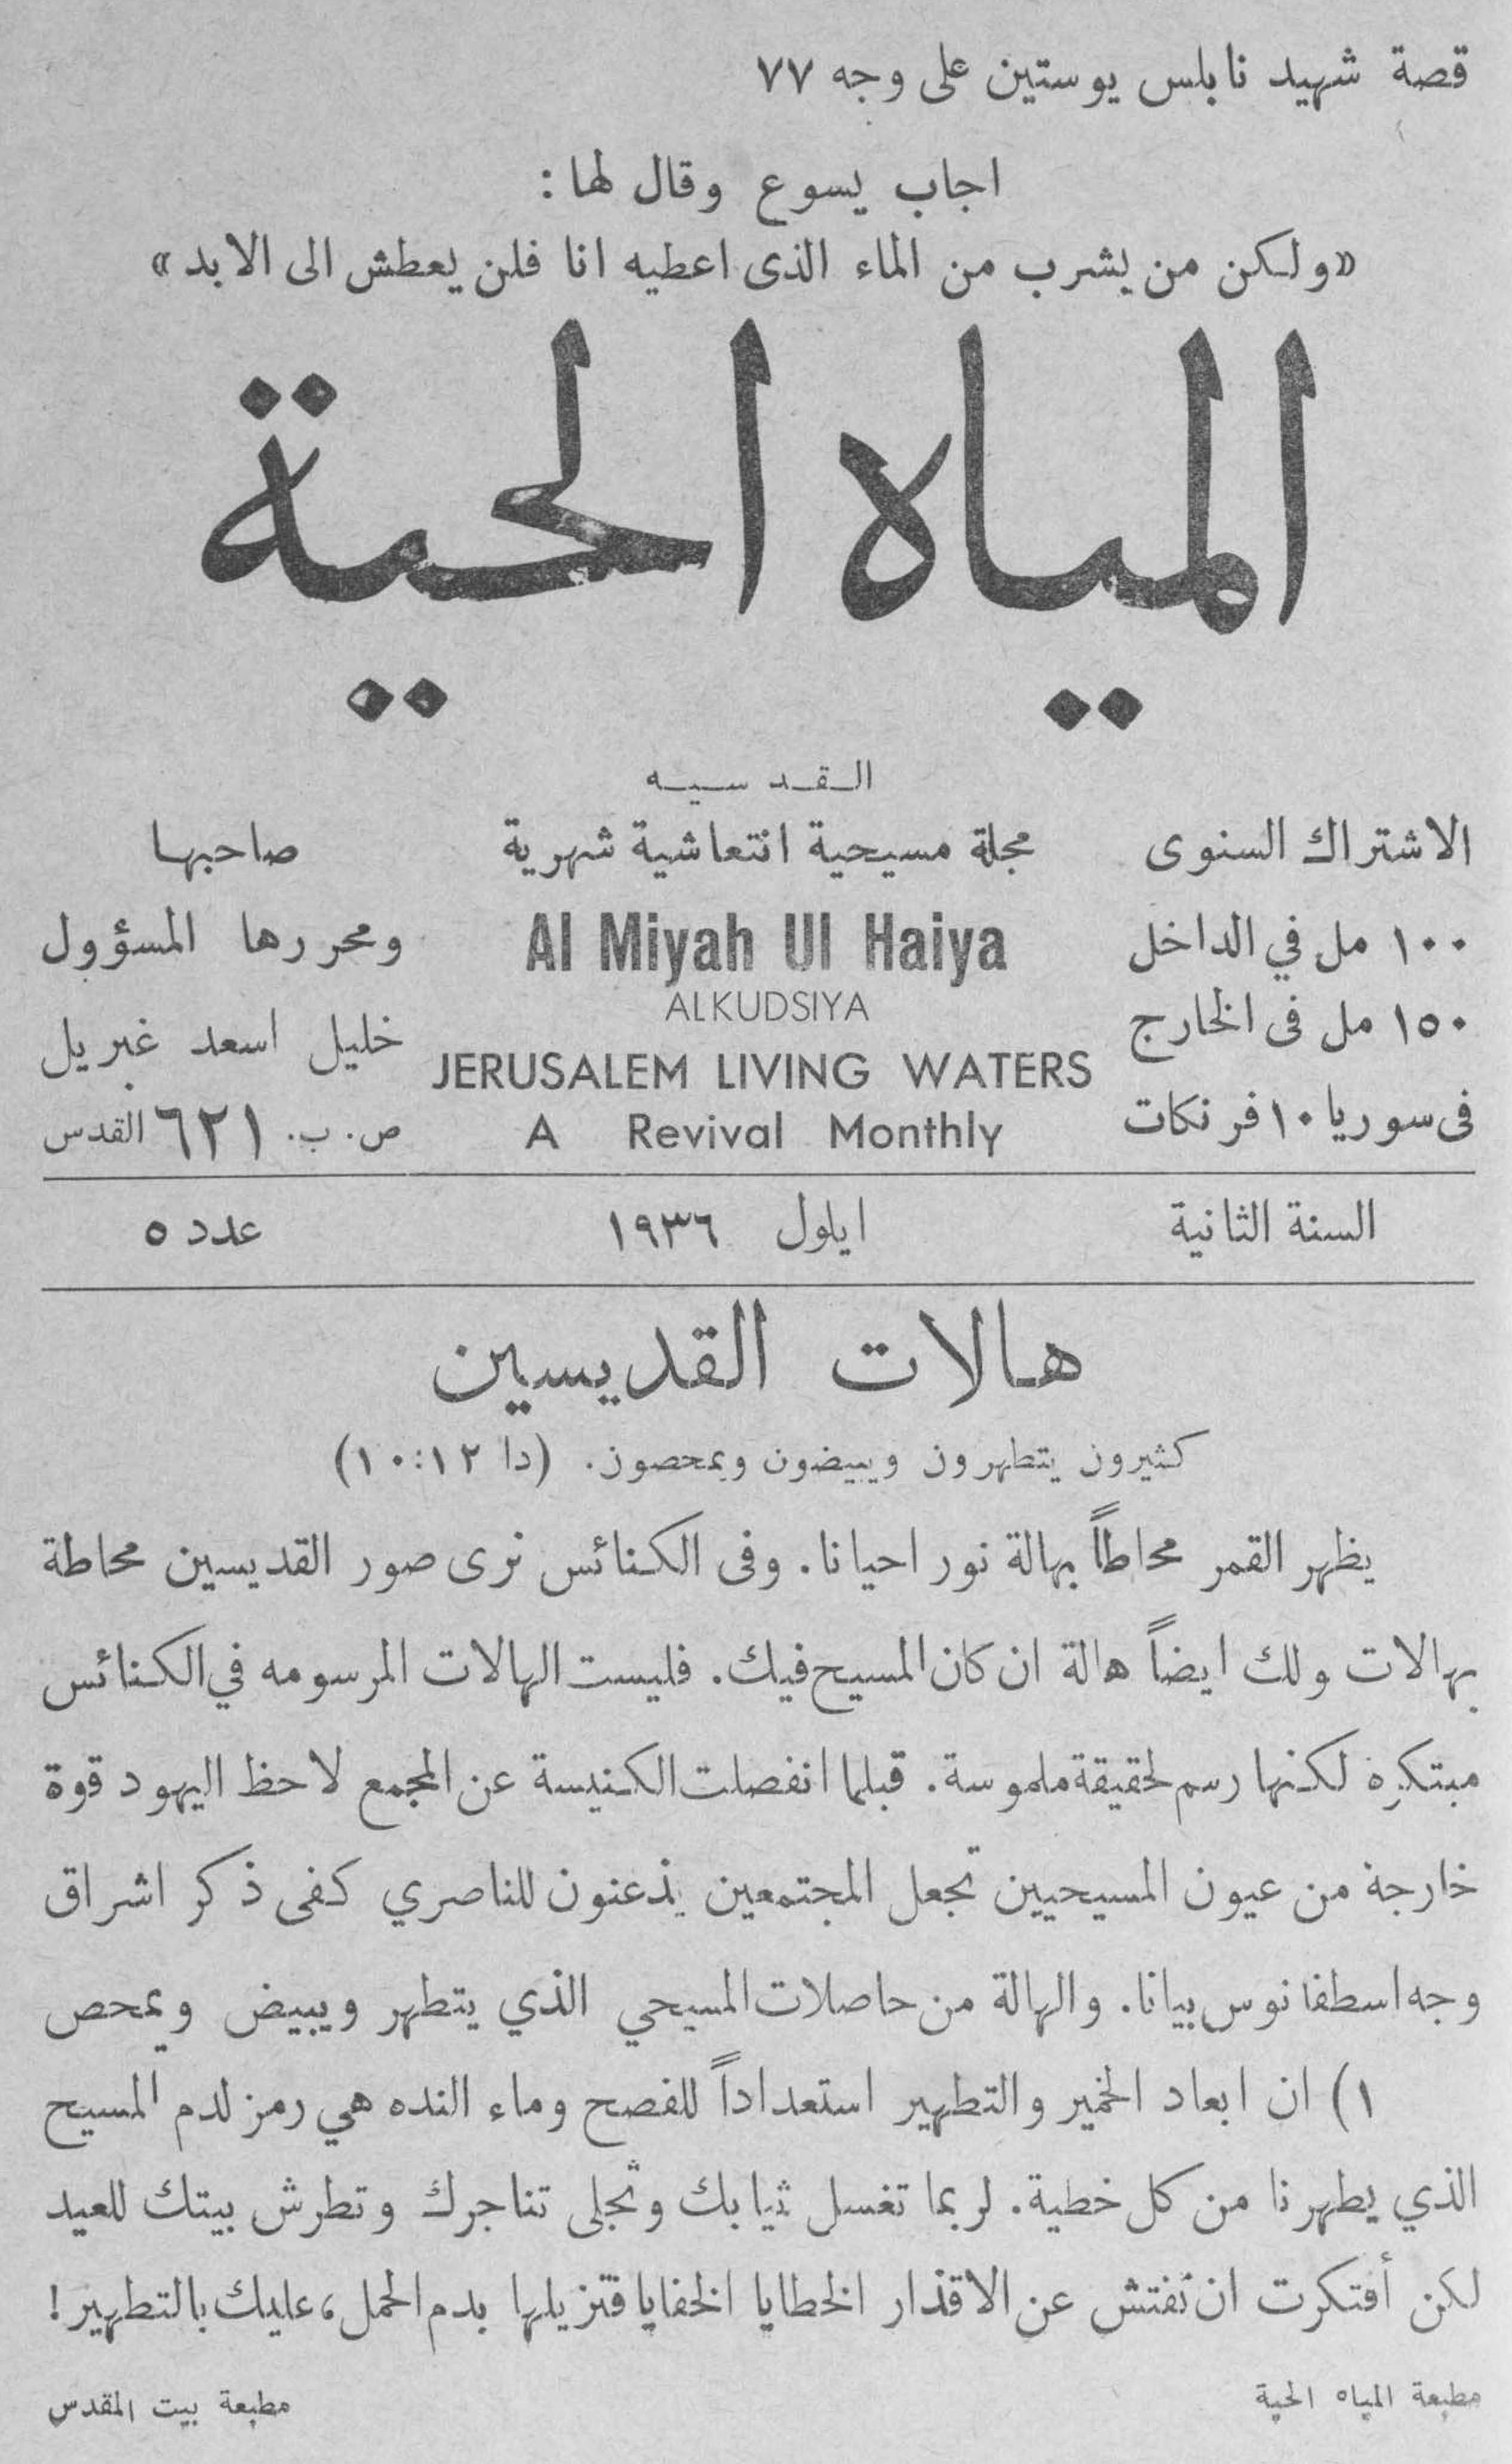 قصة شهيد نابلس يوستين على وجه ٧٧
اجاب يسوع وقال لها :
«ولكن من يشرب من الماء الذى اعطيه انا فلن يعطش الى الابد»
المياه الحية
القدسيه
الاشتراك السنوى
مجلة مسيحية انتعاشية شهرية
صاحبها
١٠٠ مل في الداخل
Al Miyah Ul Haiya
ومحررها المسؤول
ALKUDSIYA
١٥٠ مل فى الخارج
JERUSALEM LIVING WATERS
خليل اسعد غبريل
فى سوريا ١٠ فرنكات
A Revival Monthly
ص. ب. ٦٢١ القدس
السنة الثانية ايلول ١٩٣٦ عدد ٥
هالات القديسين
كثيرون يتطهرون ويبيضون ويمحصون. (دا ١٢:١٠)
يظهر القمر محاطاً بهالة نور احيانا. وفى الكنائس نرى صور القديسين محاطة
بهالات ولك ايضاً هالة ان كان المسيح فيك. فليست الهالات المرسومه في الكنائس
مبتكره لكنها رسم لحقيقة ملموسة. قبلما انفصلت الكنيسة عن المجمع لاحظ اليهود قوة
خارجة من عيون المسيحيين تجعل المجتمعين يذعنون للناصري كفى ذكر اشراق
وجه اسطفانوس بيانا. والهالة من حاصلات المسيحي الذي يتطهر ويبيض ويمحص
١) ان ابعاد الخمير والتطهير استعداداً للفصح وماء النده هي رمز لدم المسيح
الذي يطهرنا من كل خطية. لربما تغسل ثيابك وتجلى تناجرك وتطرش بيتك للعيد
لكن أفتكرت ان تفتش عن الاقذار الخطايا الخفايا فتزيلها بدم الحمل، عليك بالتطهير!
مطبعة المياه الحية
مطبعة بيت المقدس